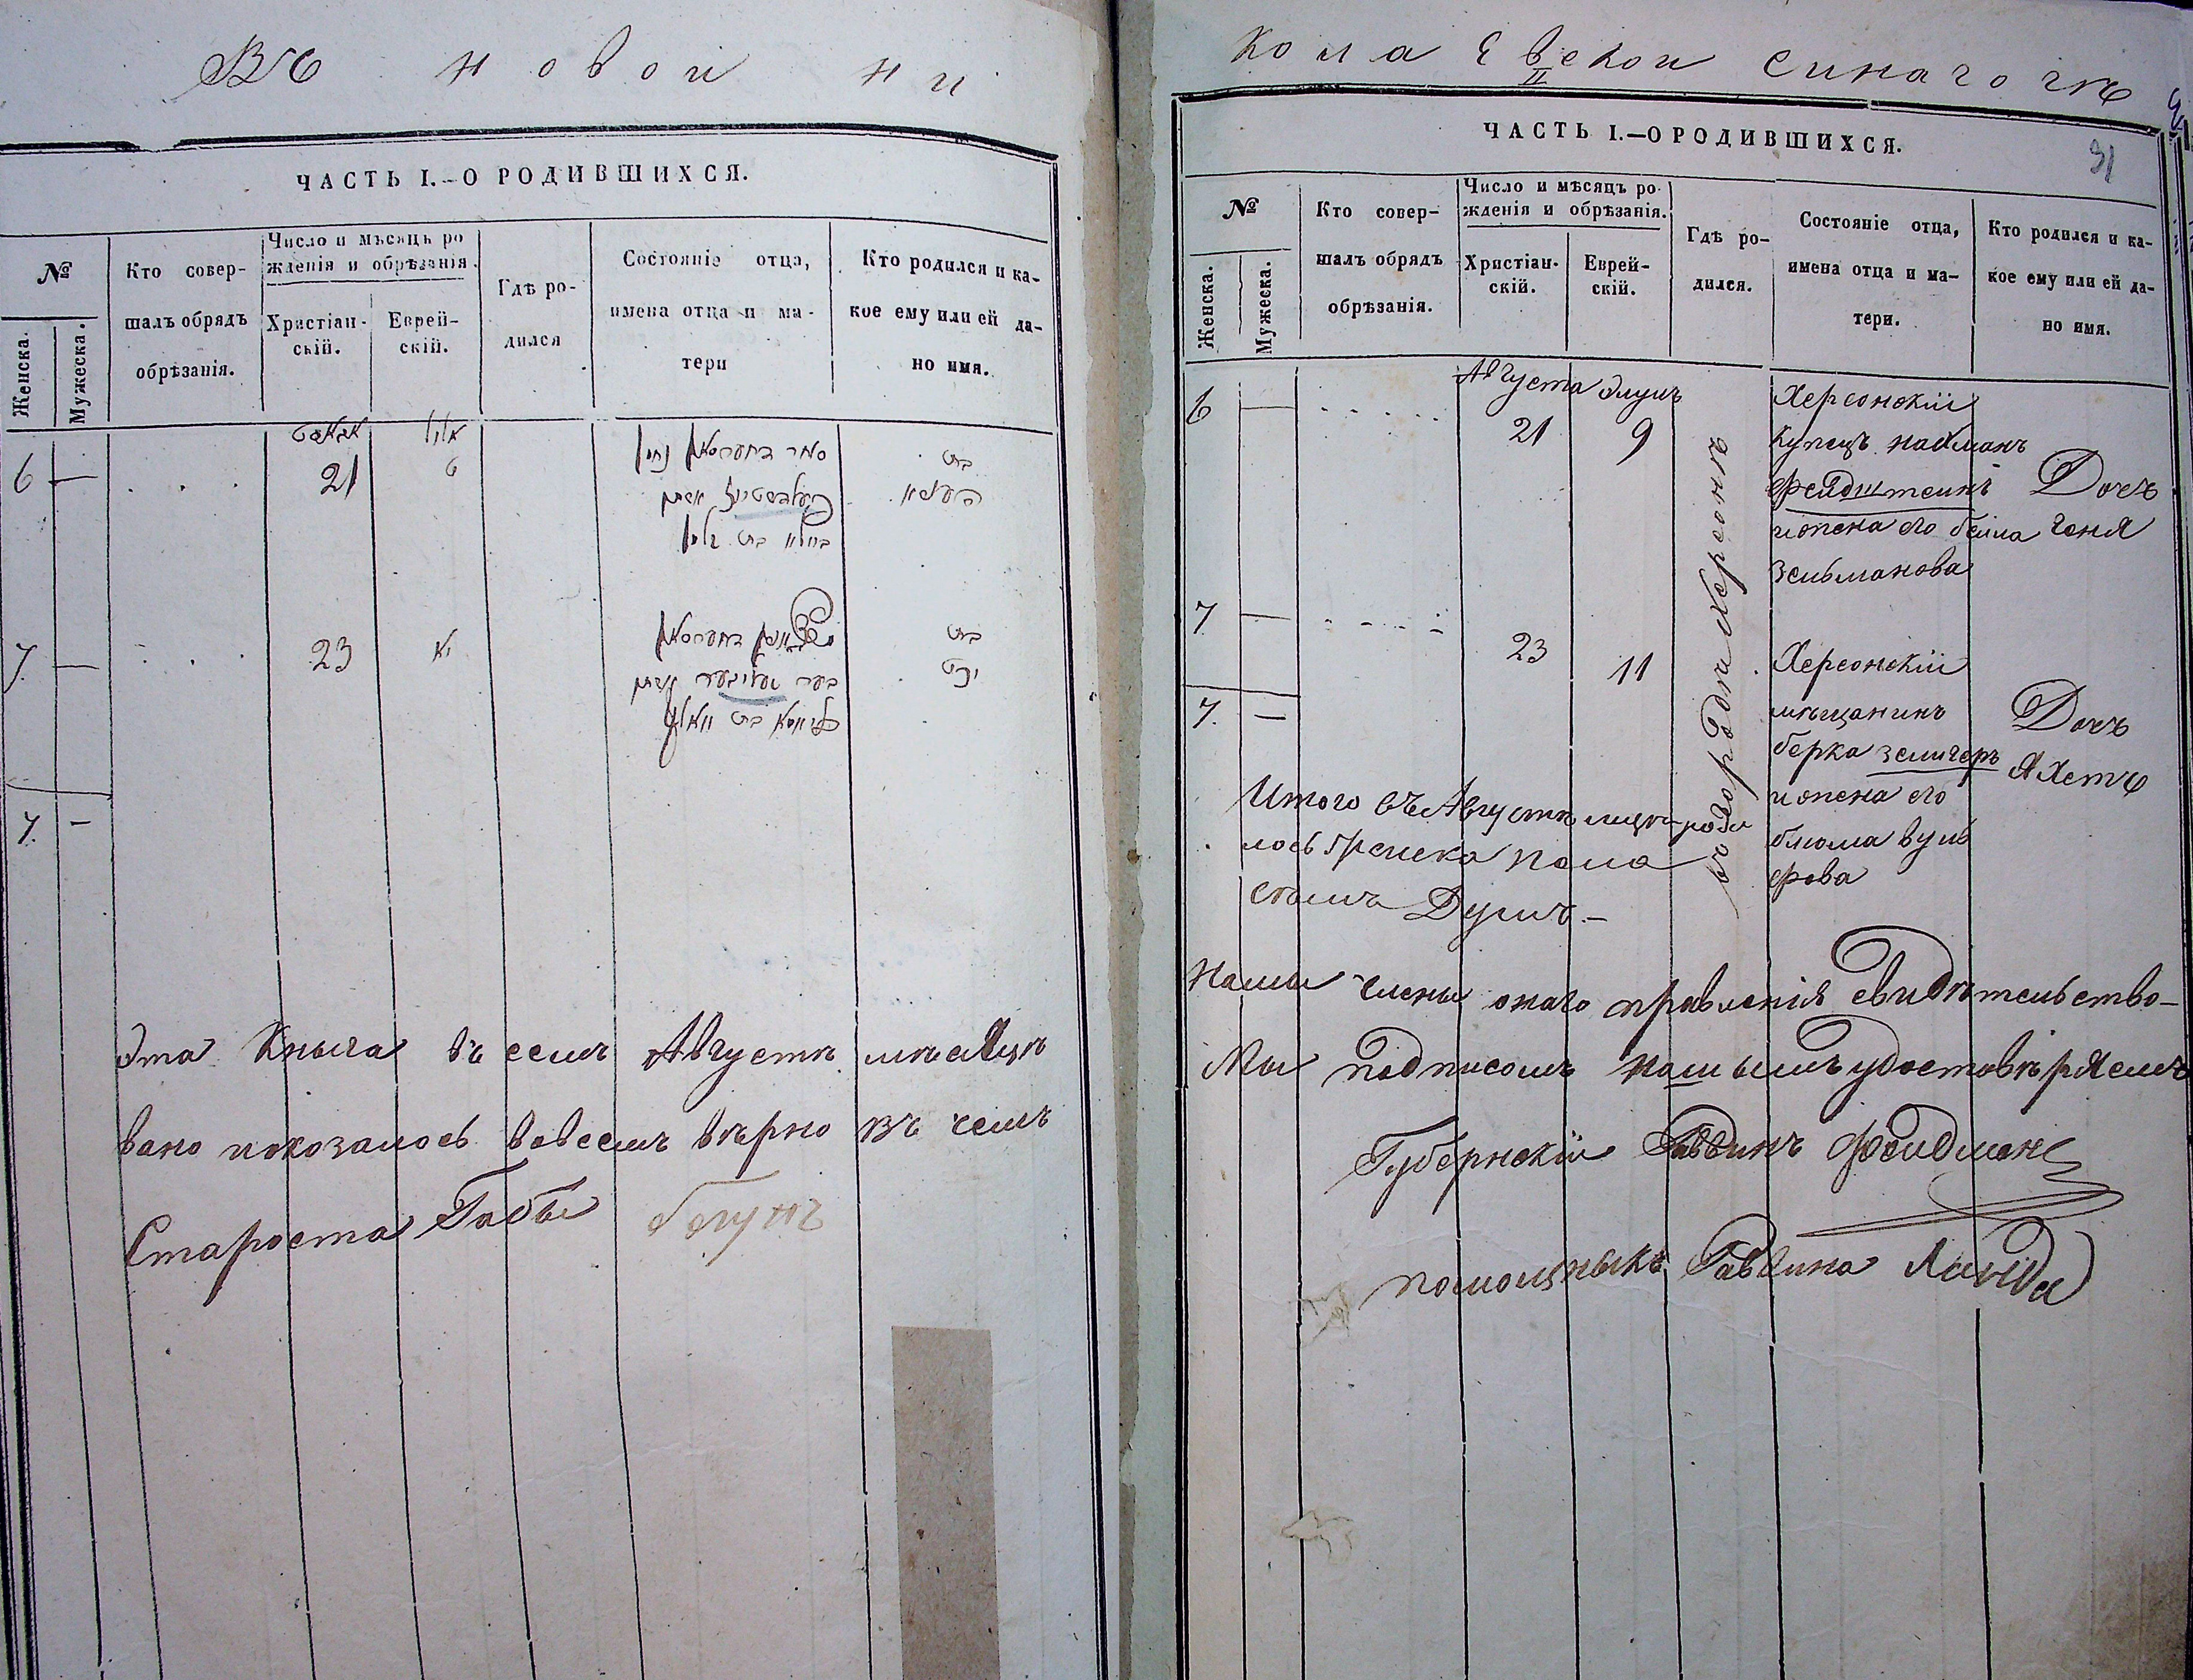 Въ новои ни
ЧАСТЬ I.—О РОДИВШИХСЯ.
№
Женска.
Мужеска.
Кто совер-
шалъ обрядъ
обрѣзанія.
Число и мѣсяцъ ро
жденія и обрѣзанія.
Христіан-
скій.
Еврей-
скій.
Гдѣ ро-
дился
Состояніе отца,
имена отца и ма-
тери
Кто родился и ка-
кое ему или ей да-
но имя.
אלול
6 — 21 ט
בת
7 — 23 יא
בת
7. —
Эта Кныга въ семъ Августѣ мѣсяцѣ
вано показалось вовсемъ вѣрно въ чемъ
Староста Габы
колаевскои синагогѣ
II
31
ЧАСТЬ I.—О РОДИВШИХСЯ.
№
Женска.
Мужеска.
Кто совер-
шалъ обрядъ
обрѣзанія.
Число и мѣсяцъ ро-
жденія и обрѣзанія.
Христіан-
скій.
Еврей-
скій.
Гдѣ ро-
дился.
Состояніе отца,
имена отца и ма-
тери.
Кто родился и ка-
кое ему или ей да-
но имя.
Августа Элулъ
6 — 21 9
въ городѣ Херсонѣ
Херсонскіи
Купецъ нахманъ
фейдштеинъ
и жена его беила
Зельманова
Дочь
Геня
7 — 23 11
Херсонскіи
мѣщанинъ
берка зелигеръ
и жена его
блюма вуль
фова
Дочь
Яхетъ
7. —
Итого въ Августѣ мцѣ роди
лось женска пола
семъ Душъ.—
Нами члены онаго правленія свидѣтельство-
Мы подписомъ нашымъ удостовѣряемъ
Губернскіи Раввинъ Фелдман
помощныкъ Раввина Линда